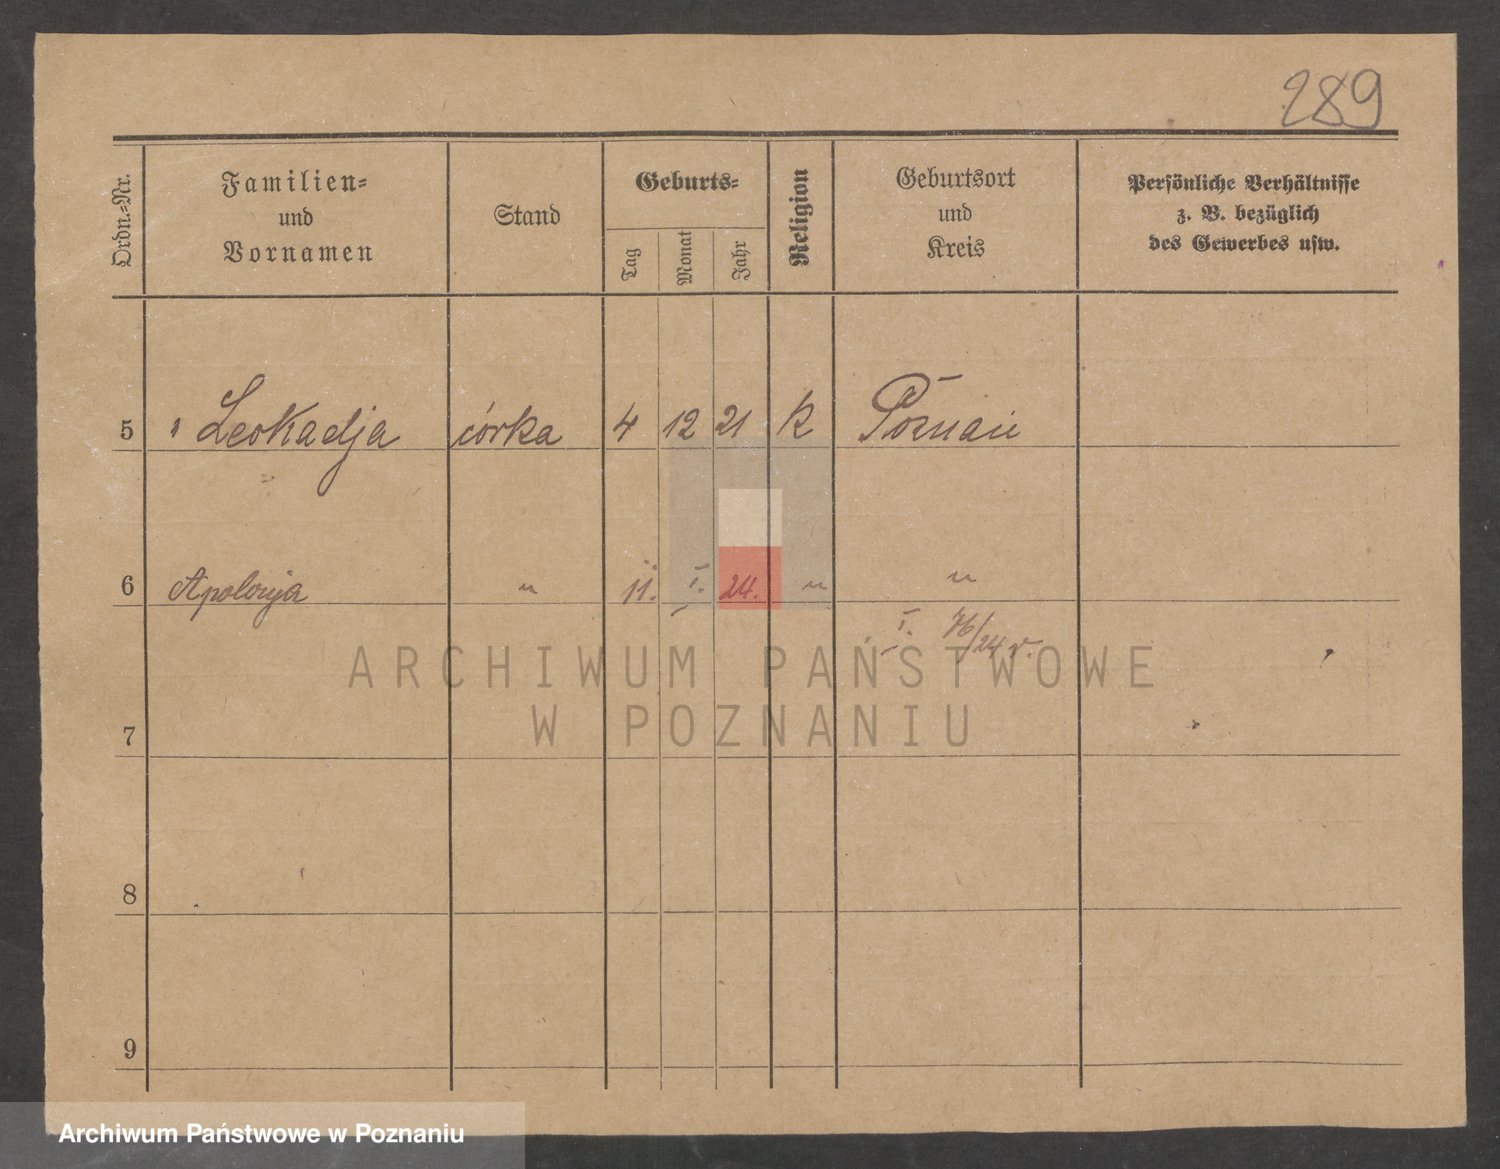 289
Ordn.=Nr.
Familien=
und
Vornamen
Stand
Geburts=
Tag
Monat
Jahr
Religion
Geburtsort
und
Kreis
Persönliche Verhältnisse
z. B. bezüglich
des Gewerbes usw.
5 " Leokadja córka 4 12 21 k Poznań
6 Apolonja " 11. I. 24. " "
I.
ARCHIWUM PAŃSTWOWE
W POZNANIU
7
8
9
Archiwum Państwowe w Poznaniu